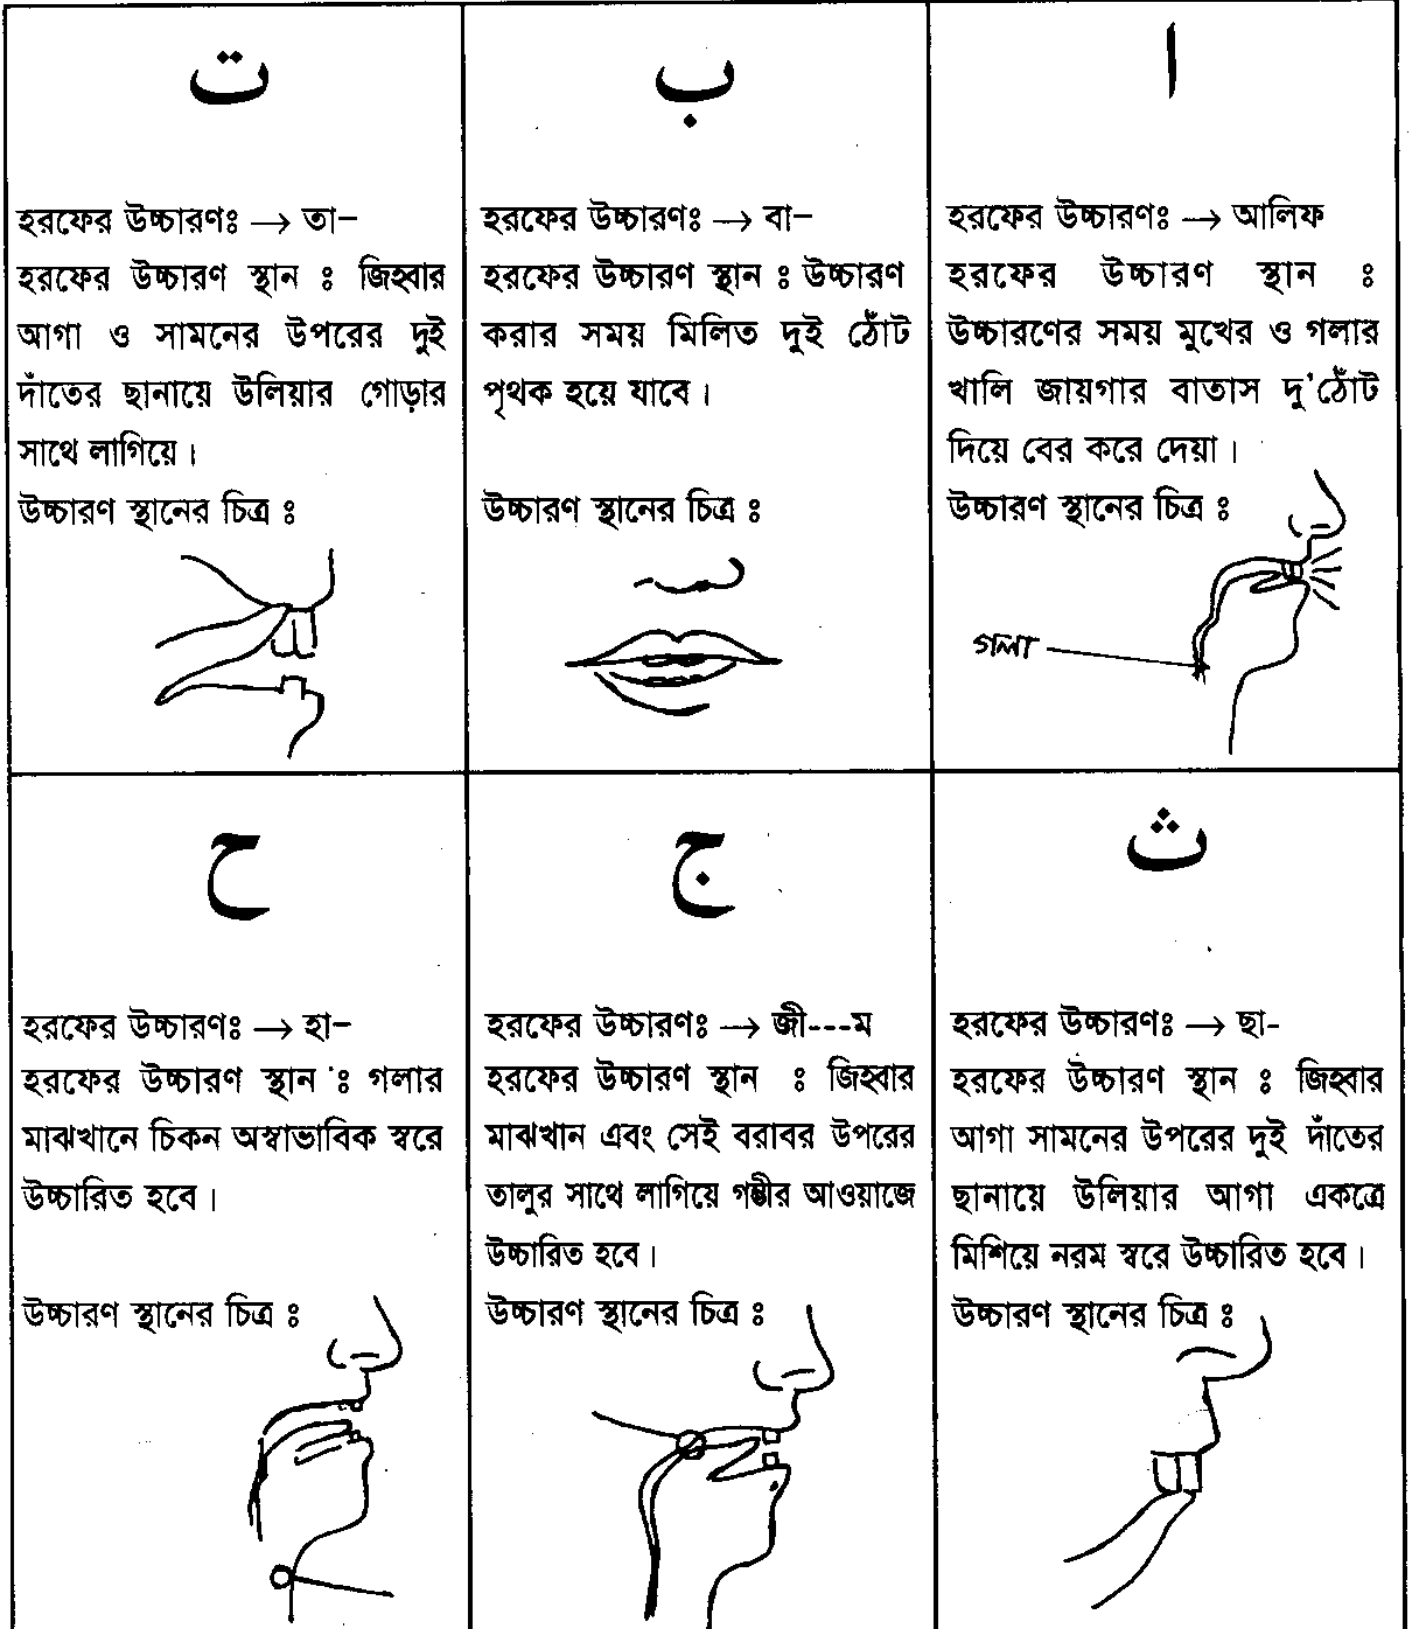 ت
হরফের উচ্চারণঃ → তা–
হরফের উচ্চারণ স্থান ঃ জিহ্বার
আগা ও সামনের উপরের দুই
দাঁতের ছানায়ে উলিয়ার গোড়ার
সাথে লাগিয়ে।
উচ্চারণ স্থানের চিত্র ঃ
ب
হরফের উচ্চারণঃ → বা–
হরফের উচ্চারণ স্থান ঃ উচ্চারণ
করার সময় মিলিত দুই ঠোঁট
পৃথক হয়ে যাবে।
উচ্চারণ স্থানের চিত্র ঃ
ا
হরফের উচ্চারণঃ → আলিফ
হরফের উচ্চারণ স্থান ঃ
উচ্চারণের সময় মুখের ও গলার
খালি জায়গার বাতাস দু'ঠোঁট
দিয়ে বের করে দেয়া।
উচ্চারণ স্থানের চিত্র ঃ
গলা
ح
হরফের উচ্চারণঃ → হা–
হরফের উচ্চারণ স্থান ঃ গলার
মাঝখানে চিকন অস্বাভাবিক স্বরে
উচ্চারিত হবে।
উচ্চারণ স্থানের চিত্র ঃ
ج
হরফের উচ্চারণঃ → জী---ম
হরফের উচ্চারণ স্থান ঃ জিহ্বার
মাঝখান এবং সেই বরাবর উপরের
তালুর সাথে লাগিয়ে গম্ভীর আওয়াজে
উচ্চারিত হবে।
উচ্চারণ স্থানের চিত্র ঃ
ث
হরফের উচ্চারণঃ → ছা-
হরফের উচ্চারণ স্থান ঃ জিহ্বার
আগা সামনের উপরের দুই দাঁতের
ছানায়ে উলিয়ার আগা একত্রে
মিশিয়ে নরম স্বরে উচ্চারিত হবে।
উচ্চারণ স্থানের চিত্র ঃ